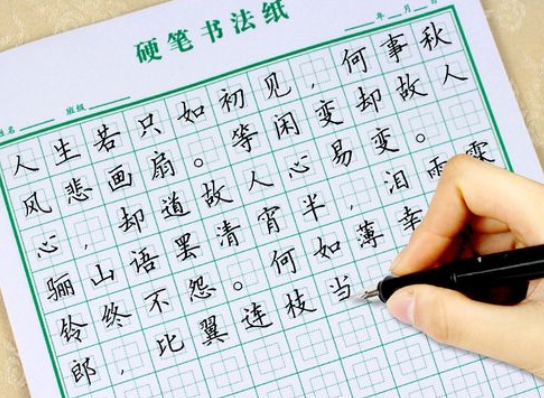 硬笔书法纸
姓名 班级 年 月 日
人生若只如初见，何事秋
风悲画扇。等闲变却故人
心，却道故人心易变。
骊山语罢清宵半，泪雨霖
铃终不怨。何如薄幸
郎，比翼连枝当